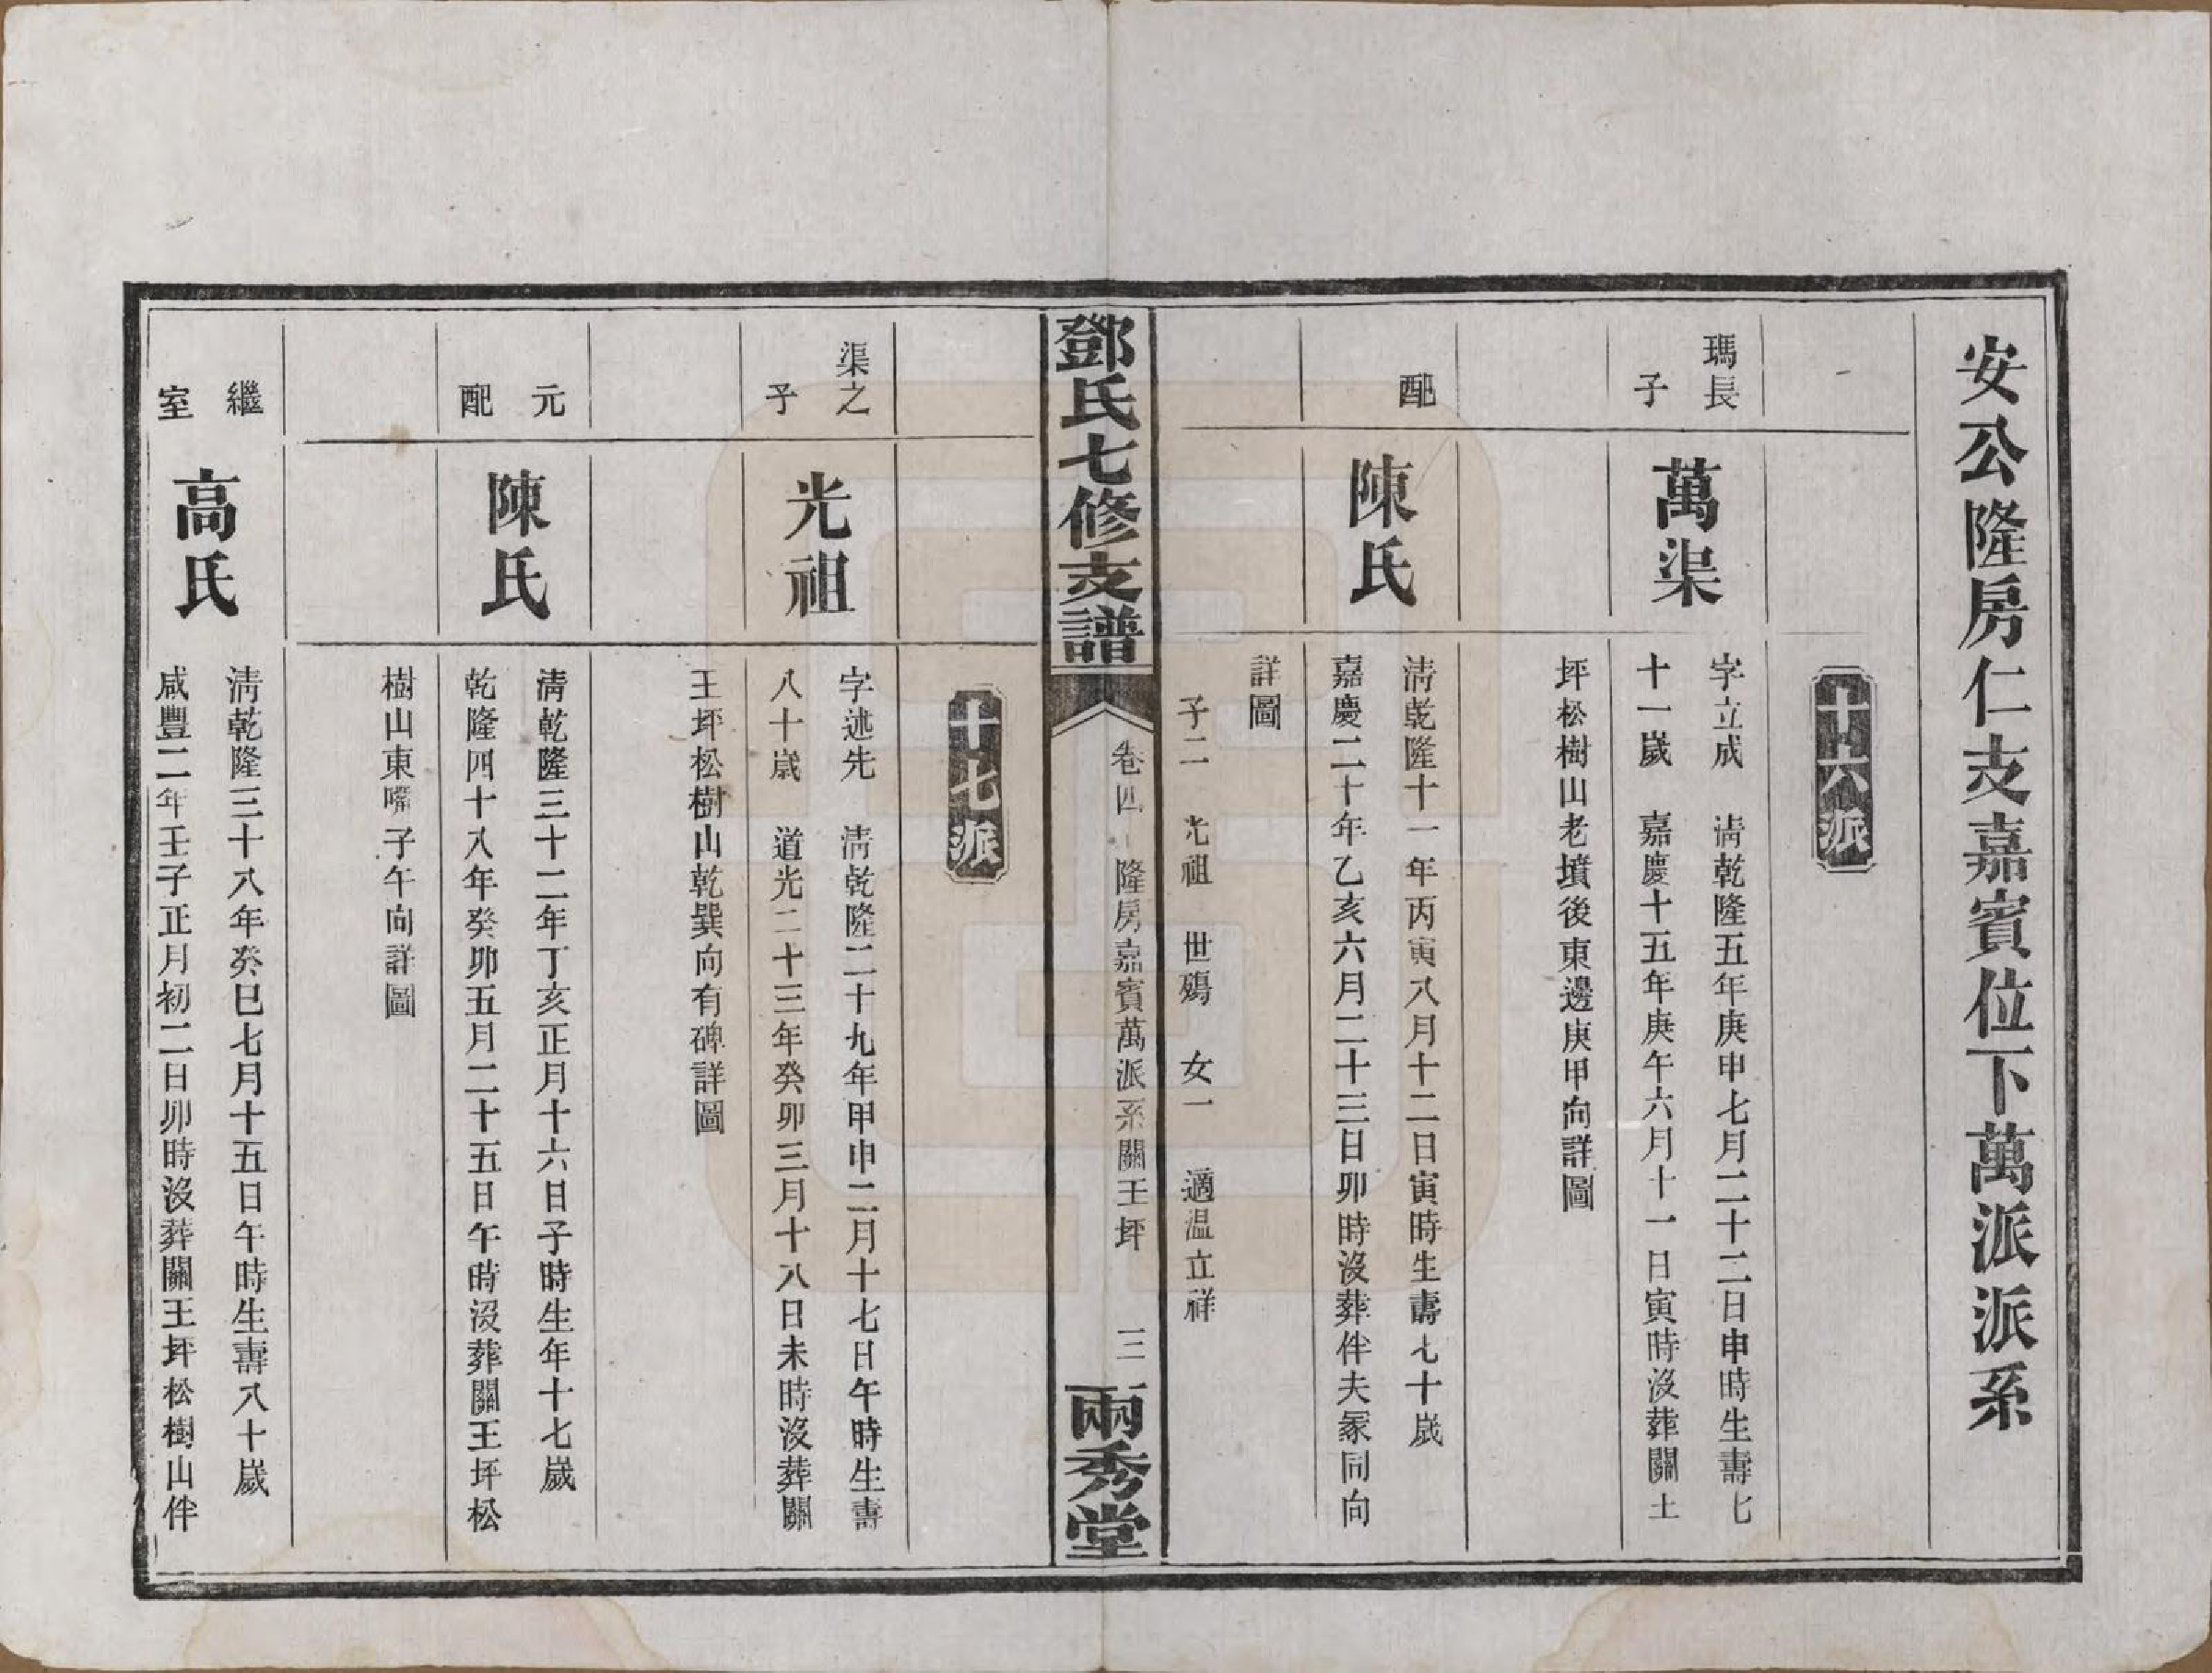 安公隆房仁支嘉賓位下萬派派系
十六派
瑪長
子
萬渠
字立成　清乾隆五年庚申七月二十二日申時生壽七
十一歲　嘉慶十五年庚午六月十一日寅時沒葬關王
坪松樹山老墳後東邊庚甲向詳圖
配
陳氏
清乾隆十一年丙寅八月十二日寅時生壽七十歲
嘉慶二十年乙亥六月二十三日卯時沒葬伴夫冢同向
詳圖
子二　光祖　世殤　女一　適温立祥
鄧氏七修支譜
卷四　隆房嘉賓萬派系關王坪
三
兩秀堂
十七派
渠之
子
光祖
字述先　清乾隆二十九年甲申二月十七日午時生壽
八十歲　道光二十三年癸卯三月十八日未時沒葬關
王坪松樹山乾巽向有碑詳圖
元
配
陳氏
清乾隆三十二年丁亥正月十六日子時生年十七歲
乾隆四十八年癸卯五月二十五日午時沒葬關王坪松
樹山東嘴子午向詳圖
繼
室
高氏
清乾隆三十八年癸巳七月十五日午時生壽八十歲
咸豐二年壬子正月初二日卯時沒葬關王坪松樹山伴